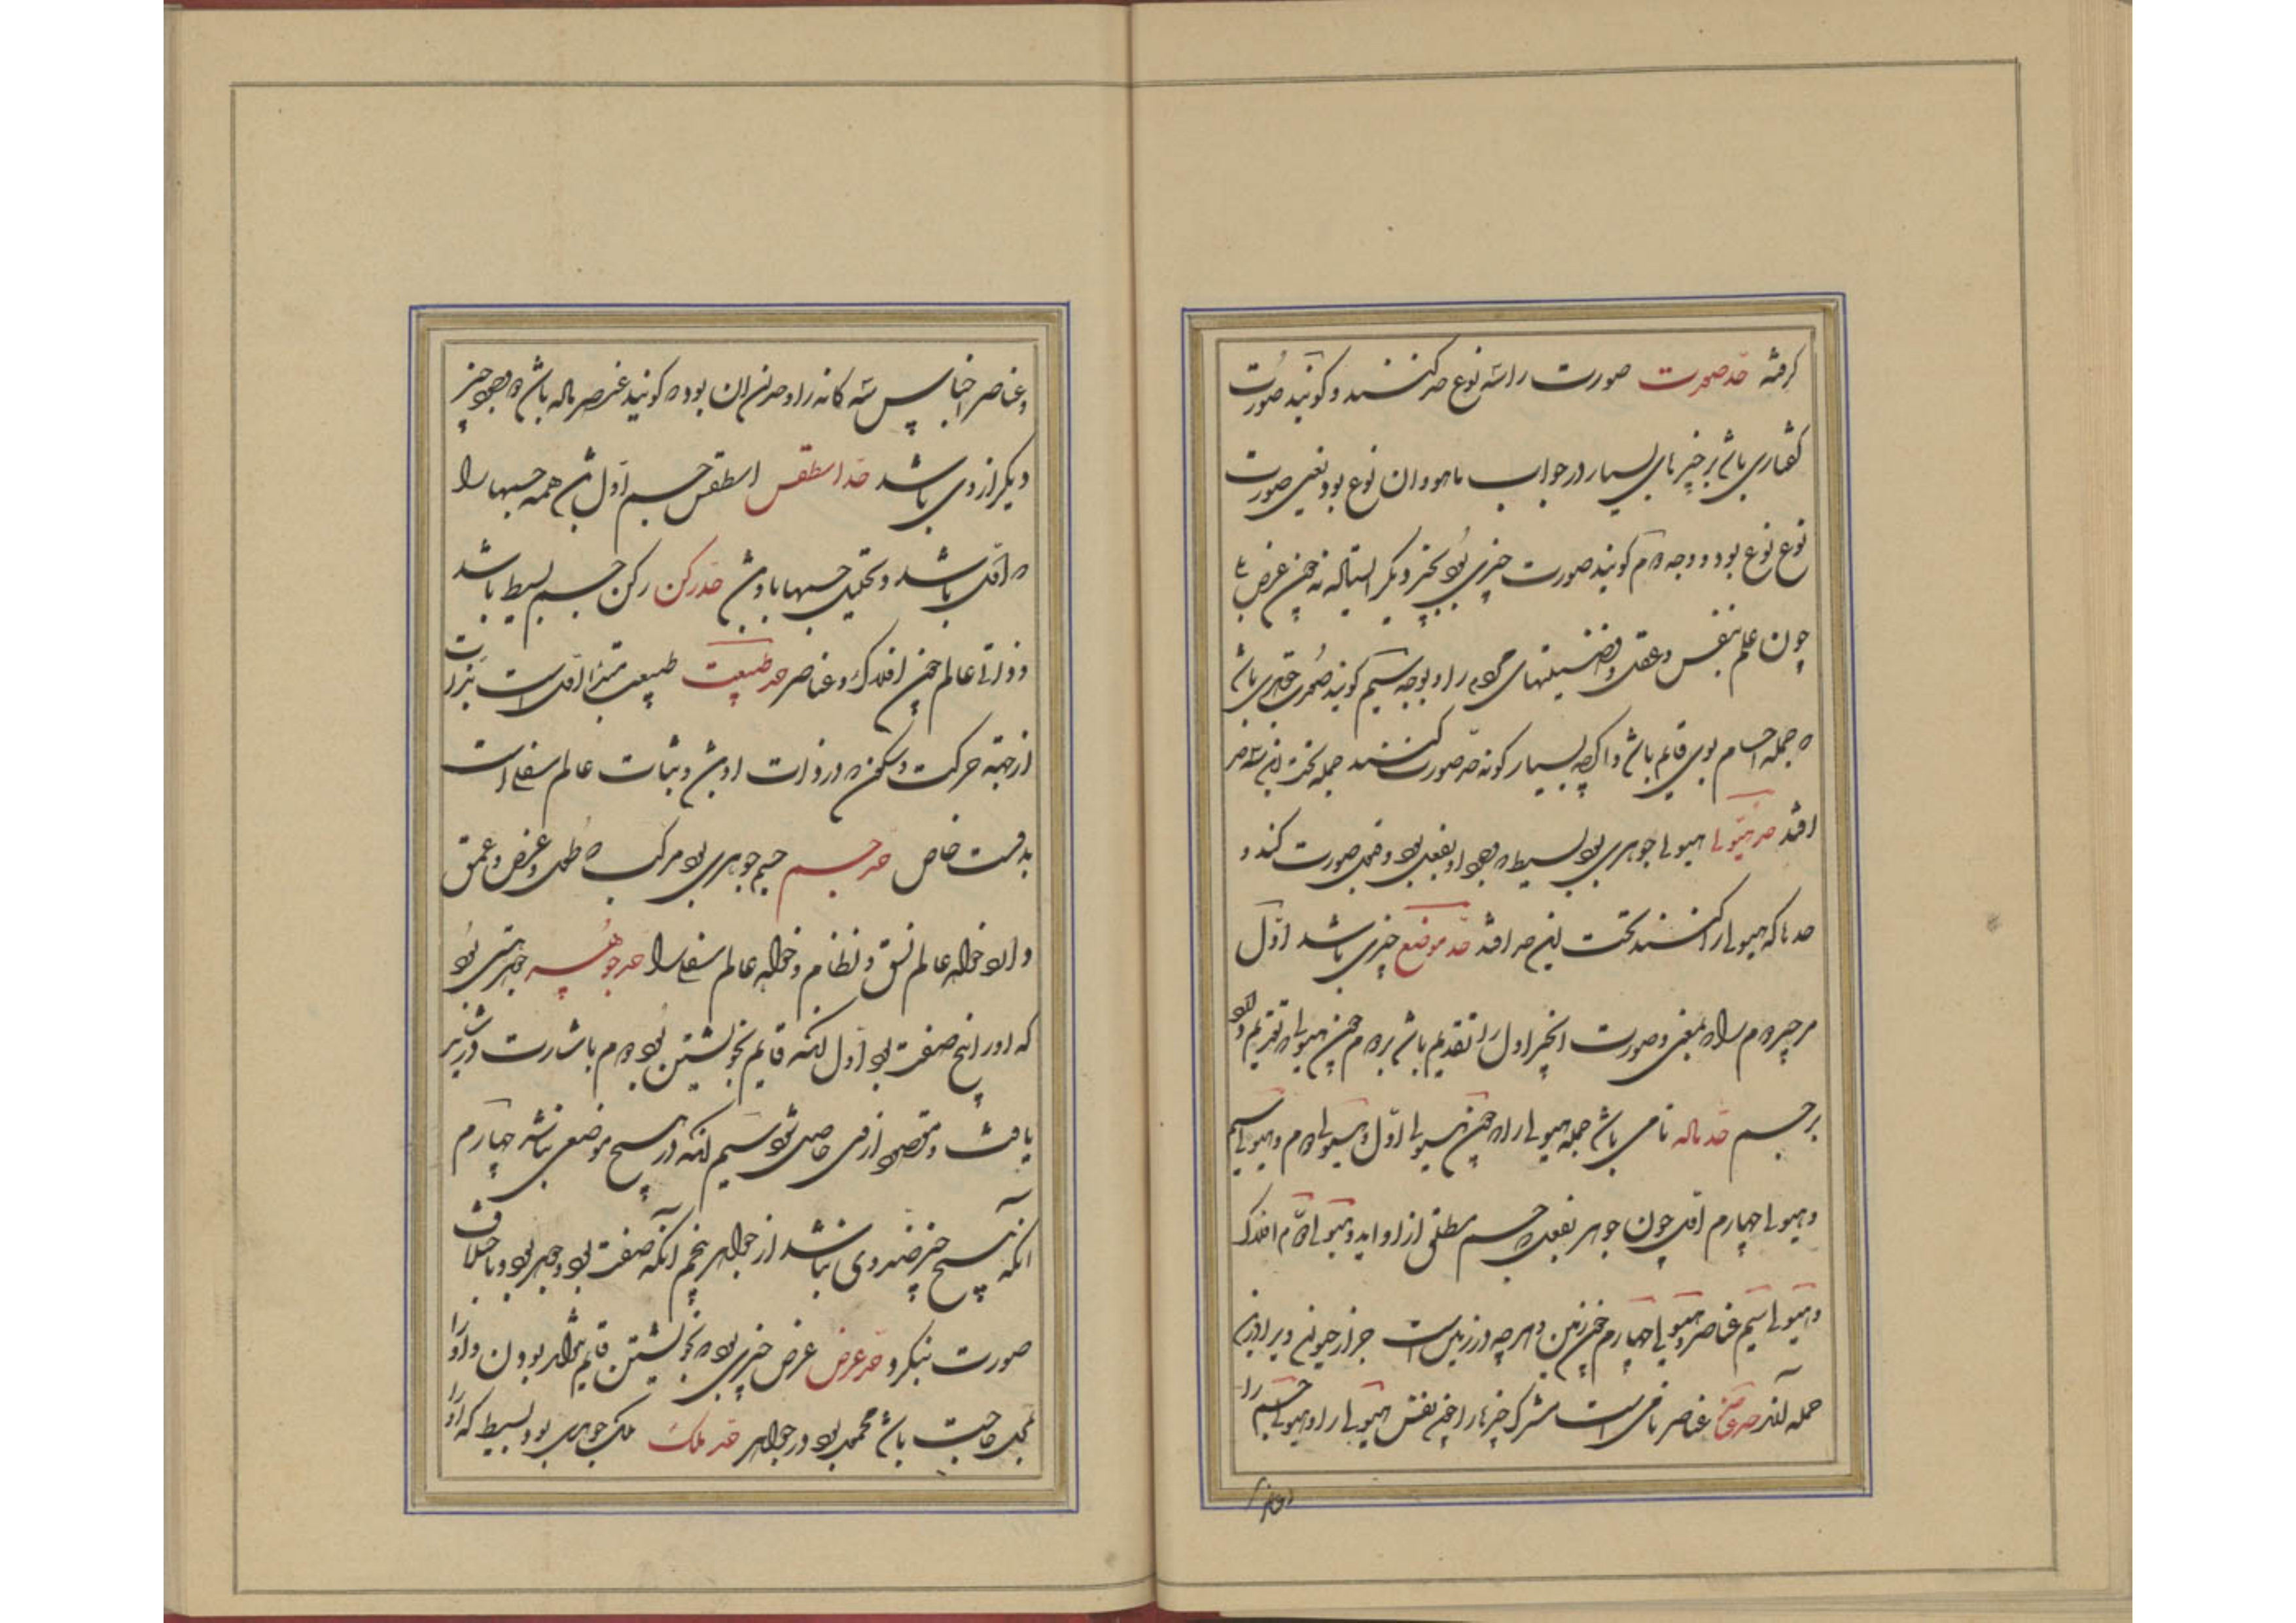 گرفته حد صورت صورت را سه نوع حد کنند و گویند صورت
گفتاری باشد بر چیزهای بسیار در جواب ماهو و ان نوع بود یعنی صورت
نوع نوع بود و وجه دوم گویند صورت چیزی بود بچیز دیگر
چون علم بنفس و عقل و فضیلتهای مردم را و بوجه سیم گویند صورت چیزی باشد
که جمله اجسام بوی قایم باشد و اگر چه بسیار گونه حد صورت کنند جمله تحت این سه حد
افتد حد هیولی هیولی جوهری بود بسیط که وجود او بفعل بود و قبول صورت کند و
حدها که هیولی را کنند تحت این حد افتد حد موضع چیزی باشد اول
مر چیز دوم را بمعنی و صورت انچیز اول را تقدیم باشد بر دوم چون هیولی که تقدیم دارد
بر جسم حد ماده نامی باشد جمله هیولی را چون هیولی اول و هیولی دوم و هیولی سیم
و هیولی چهارم اول چون جوهر بفعل که جسم مطلق از او اید و هیولی دوم افلاک
و هیولی سیم عناصر و هیولی چهارم چون زمین و هر چه در زمین است جز از حیوان
جمله آنند حد عناصر عناصر نامی است مشترک چیزها را چون نفس هیولی را و هیولی جسم را
و عناصر
و عناصر اجناس سه گانه را و حد ان بود که گویند عنصر ماده باشد که وجود چیز
دیگر از وی باشد حد اسطقس اسطقس جسم اول باشد همه جسمها را
که اول باشد و تحلیل جسمها باو باشد حد رکن رکن جسم بسیط باشد
و ذاتی عالم چون افلاک و عناصر حد طبیعت طبیعت مبدأ اول است بذات
از جهة حرکت و سکون که در ذات او باشد و ثبات عالم سفلی است
خاص حد جسم جسم جوهری بود مرکب که طول و عرض و عمق
دارد خواه عالم نسق و نظام و خواه عالم سفلی را حد جوهر جوهر هستی بود
که او را پنج صفت بود اول انکه قایم بخویشتن بود دوم باشارت در نیز
یافت و مقصود از وی حاصل شود سیم انکه در هیچ موضعی نباشد چهارم
انکه هیچ چیز ضد وی نباشد از جواهر پنجم انکه صفت بود و جوهر بود و باختلاف
صورت بنگردد حد عرض عرض چیزی بود که بخویشتن قایم نتواند بودن و او را
بمحل حاجت باشد محمول بود در جواهر حد ملک ملک جوهری بود بسیط که او را